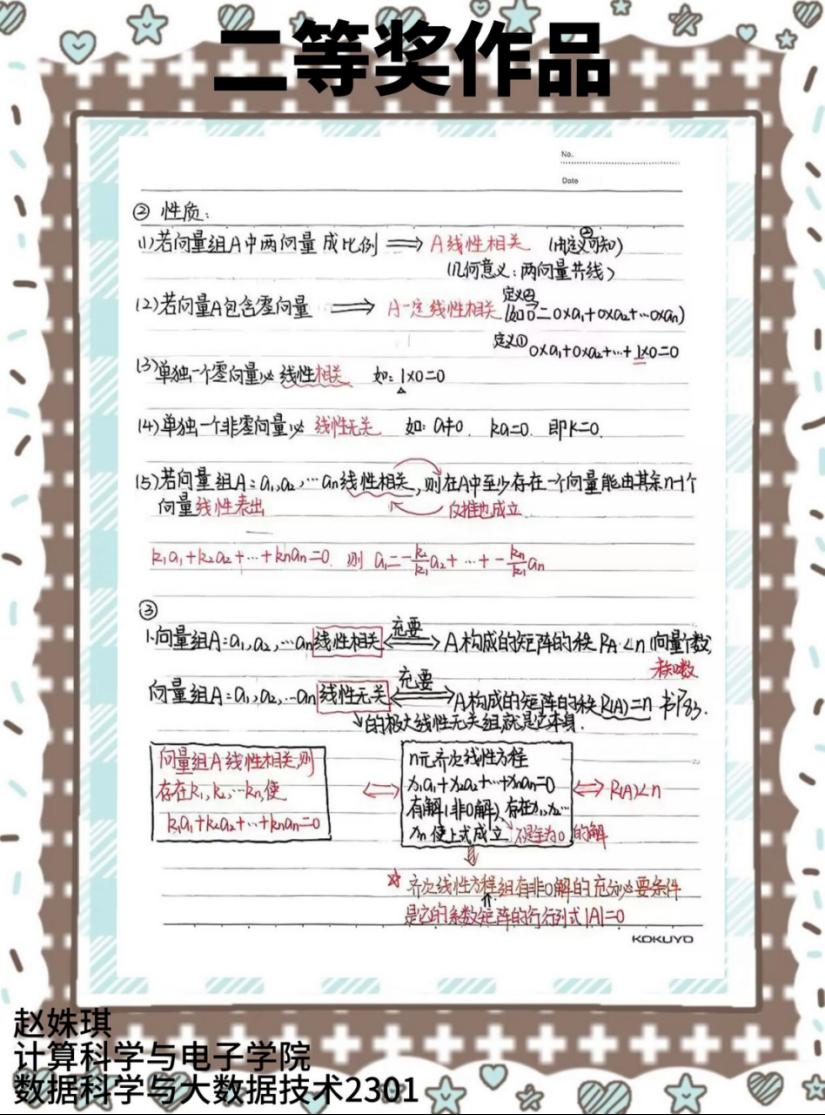 二等奖作品
No.
Date
② 性质:
(1)若向量组A中两向量成比例 ⟹ A线性相关 (由定义②可知)
(几何意义:两向量共线)
(2)若向量A包含零向量 ⟹ A一定线性相关 定义② (如0=0×a₁+0×a₂+…0×aₙ)
定义① 0×a₁+0×a₂+…+1×0=0
(3)单独一个零向量必线性相关 如:1×0=0
(4)单独一个非零向量必线性无关 如:a≠0. ka=0. 即k=0.
(5)若向量组A:a₁,a₂,…aₙ线性相关,则在A中至少存在一个向量能由其余n-1个
向量线性表出 反推也成立
k₁a₁+k₂a₂+…+kₙaₙ=0. 则 a₁=-k₂/k₁a₂+…+-kₙ/k₁aₙ
③
1.向量组A:a₁,a₂,…aₙ线性相关 ⟺ 充要 A构成的矩阵的秩RA<n(向量个数)
未知数
向量组A:a₁,a₂,…aₙ线性无关 ⟺ 充要 A构成的矩阵的秩R(A)=n
↘的极大线性无关组就是它本身.
向量组A线性相关,则
存在k₁,k₂,…kₙ,使
k₁a₁+k₂a₂+…+kₙaₙ=0
⟺
n元齐次线性方程
x₁a₁+x₂a₂+…+xₙaₙ=0
有解(非0解),存在x₁,x₂…
xₙ使上式成立 不是全为0的解
⟺ R(A)<n
☆ 齐次线性方程组有非0解的充分必要条件
是它的系数矩阵的行列式|A|=0
KOKUYO
赵姝琪
计算科学与电子学院
数据科学与大数据技术2301